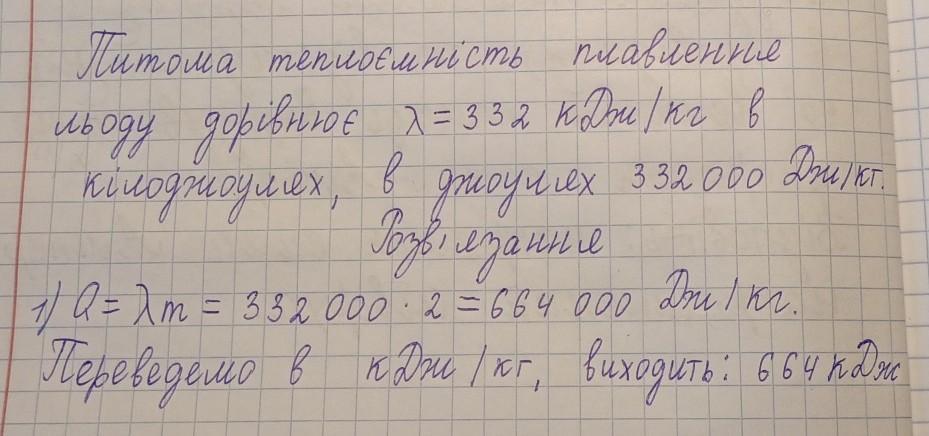 Питома теплоємність плавлення
льоду дорівнює λ = 332 кДж/кг в
кілоджоулях, в джоулях 332 000 Дж/кг.
Розв'язання
1) Q = λm = 332 000 · 2 = 664 000 Дж/кг.
Переведемо в кДж/кг, виходить: 664 кДж